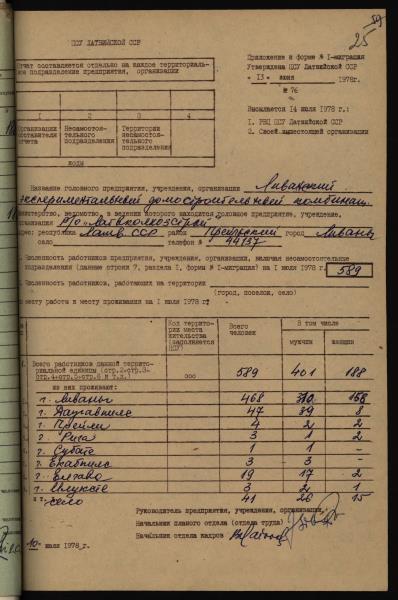 25
ЦСУ ЛАТВИЙСКОЙ ССР
Отчет составляется отдельно на каждое территориаль-
ное подразделение предприятия, организации
Приложение к форме № 1-миграция
Утверждена ЦСУ Латвийской ССР
" 13 " июня 1978г.
№ 76
Высылается 14 июля 1978 г.:
1. РВЦ ЦСУ Латвийской ССР
2. Своей вышестоящей организации
1 2 3 4
Организации составителя отчета
Несамостоятельного подразделения
Территории несамостоятельного подразделения
КОДЫ
Название головного предприятия, учреждения, организации Ливанский
экспериментальный домостроительный комбинат
министерство, ведомство, в ведении которого находится головное предприятие, учреждение,
организация Р/О "Латвколхозстрой"
Адрес: республика Латв. ССР район Прейльский город Ливаны
село телефон № 44137
Численность работников предприятия, учреждения, организации, включая несамостоятельные
подразделения (данные строки 7, раздела I, форма № 1-миграция) на 1 июля 1978 г. 589
Численность работников, работающих на территории
(город, поселок, село)
по месту работы и месту проживания на 1 июля 1978 г.
Код территории места жительства (заполняется ЦСУ)
Всего человек
В том числе
мужчин женщин
Всего работников данной территориальной единицы (стр.2+стр.3+стр.4+стр.5+стр.6 и т.д.) 000 589 401 188
из них проживают:
г. Ливаны 468 310 158
г. Даугавпилс 47 39 8
г. Прейли 4 2 2
г. Рига 3 1 2
г. Субате 1 1 -
г. Екабпилс 3 3 -
г. Елгава 19 17 2
г. Илуксте 3 2 1
село 41 26 15
Руководитель предприятия, учреждения, организации
Начальник планового отдела (отдела труда)
Начальник отдела кадров
"10" июля 1978 г.